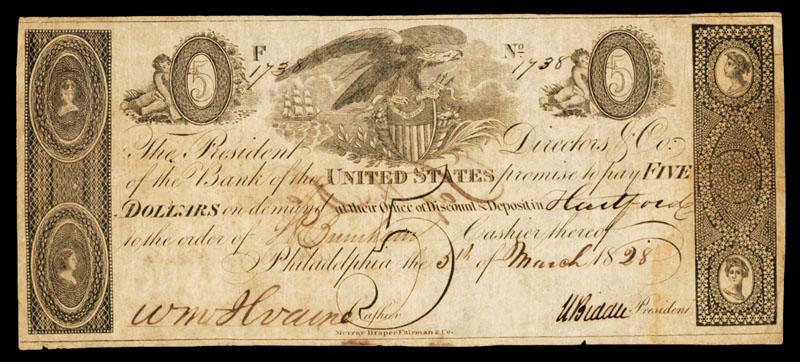 F No
1738 1738
5 5
The President Directors & Co.
of the Bank of the UNITED STATES promise to pay FIVE
DOLLARS on demand at their Office of Discount & Deposit in Hartford
to the order of Cashier thereof
Philadelphia the 5th of March 1828
5
Wm McIlvaine Cashier N Biddle President
Murray Draper Fairman & Co.